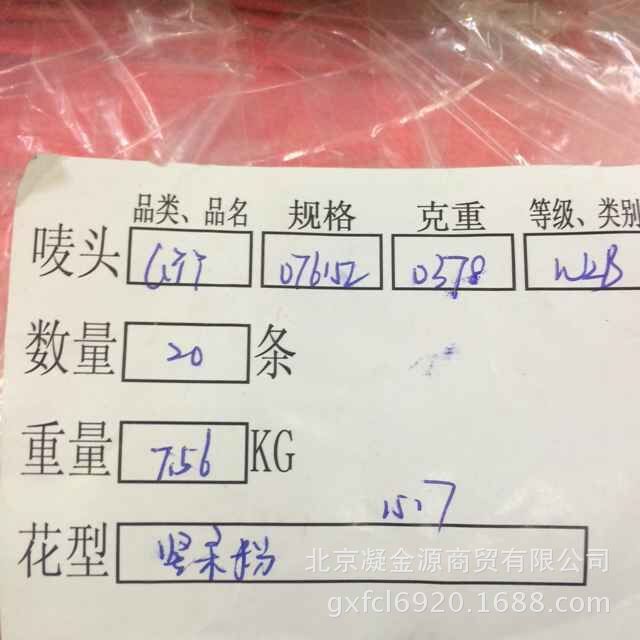 品类、品名 规格 克重 等级、类别
唛头 076152 0378 WLB
数量 20 条
重量 7.56 KG
15.7
花型 坚柔粉
北京凝金源商贸有限公司
gxfcl6920.1688.com